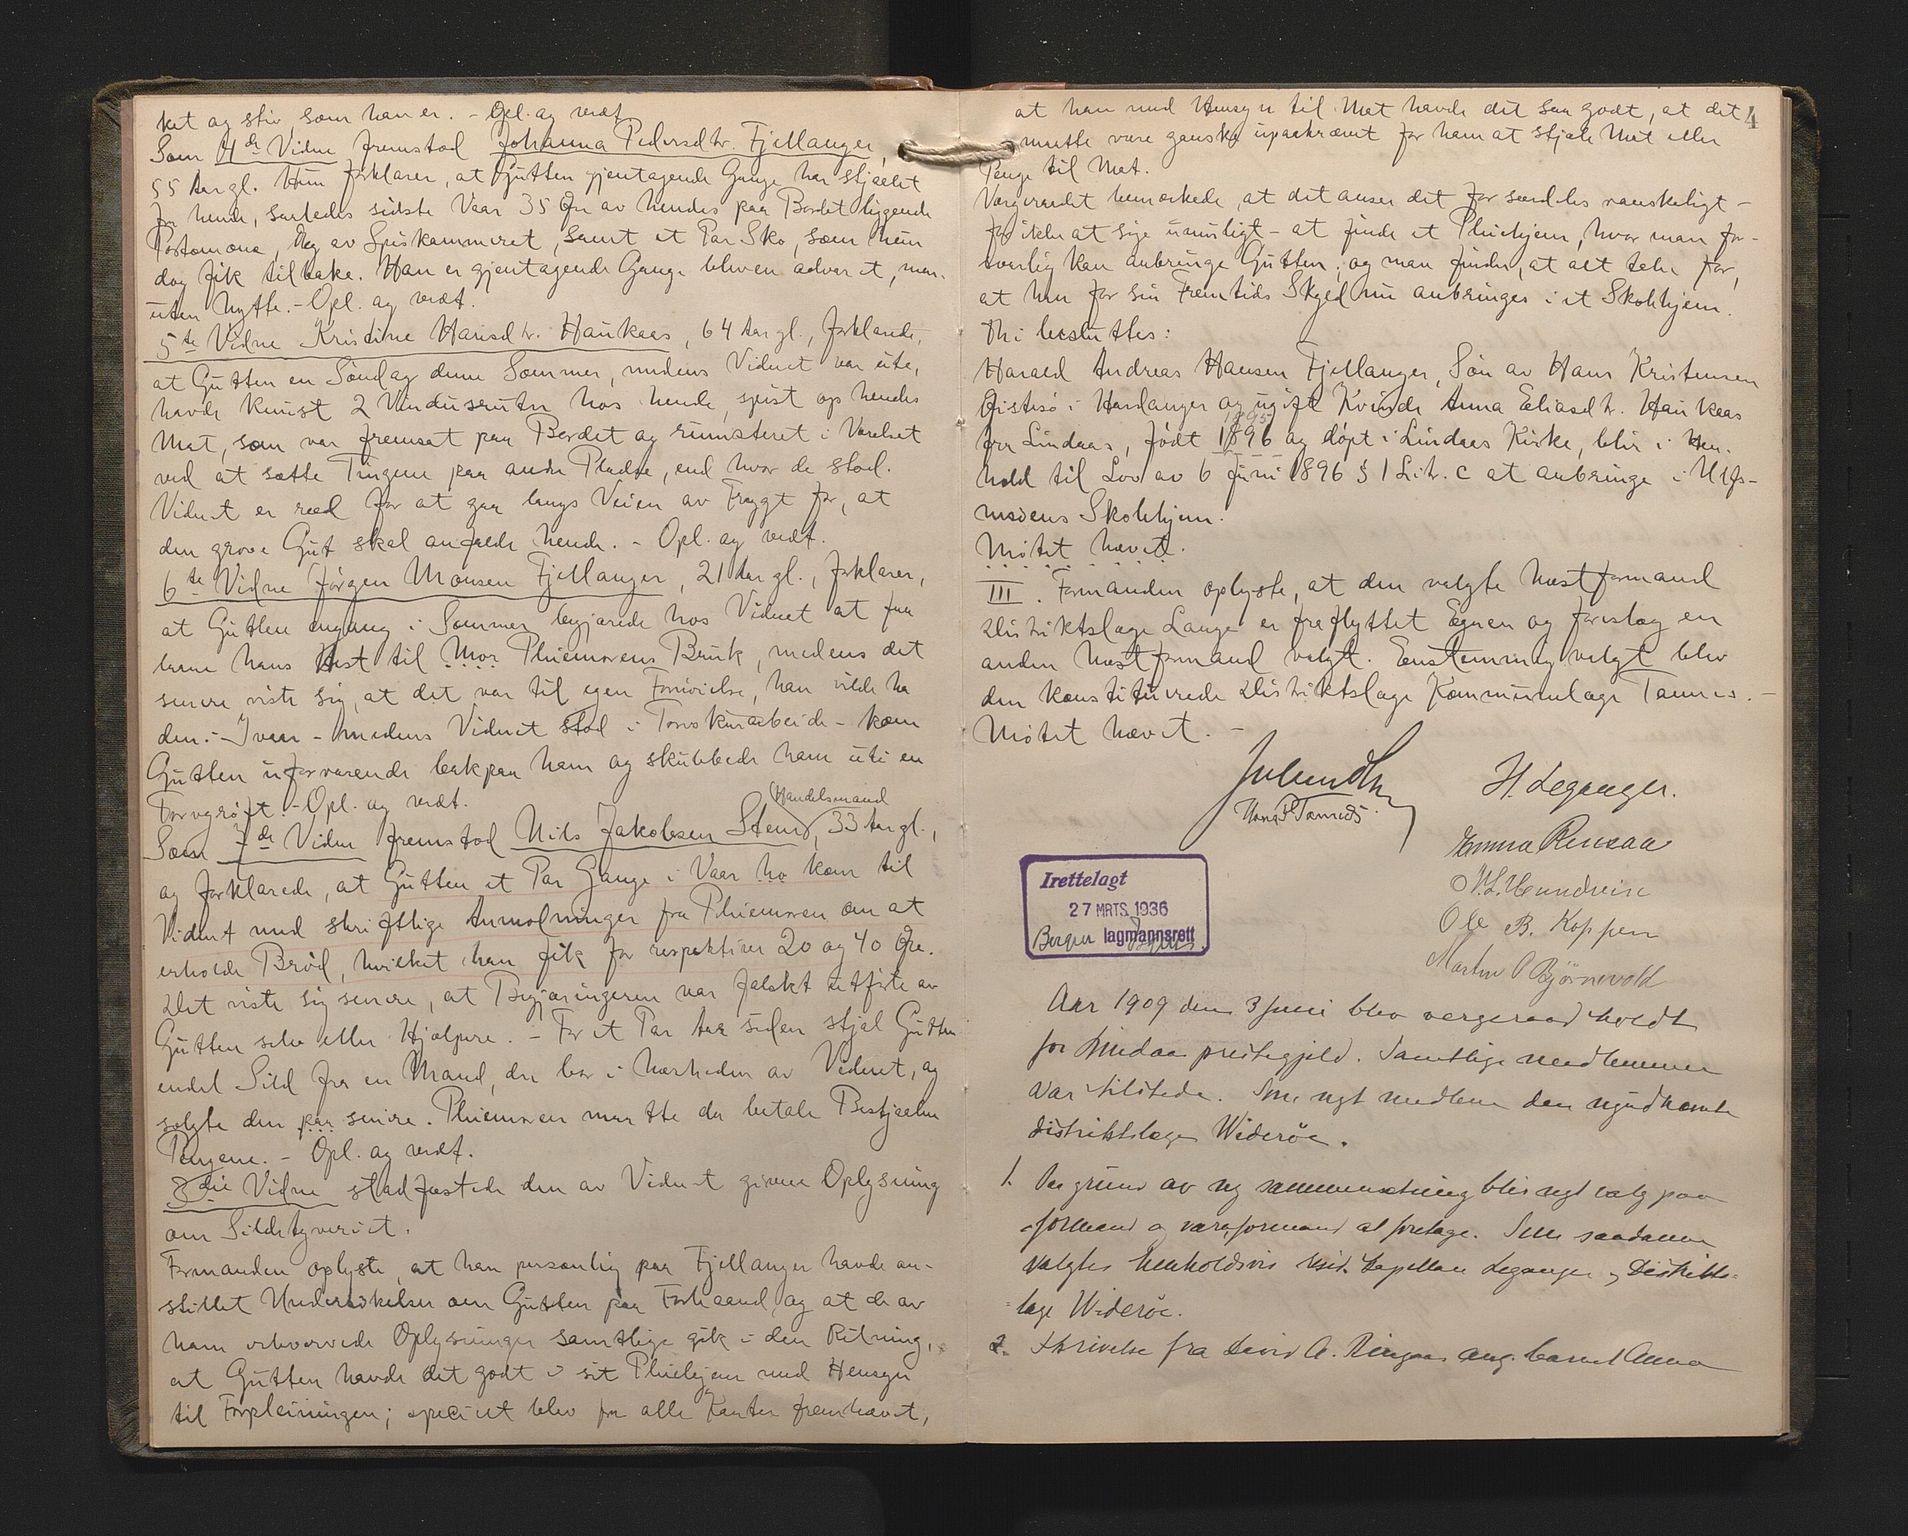 ket og stiv som han er. – Opl. og vedt.
Som 4de Vidne fremstod Johanna Pedersdtr. Fjellanger,
55 Aar gl. Hun forklarer, at Gutten gjentagende Gange har stjaalet
fra hende, saaledes sidste Vaar 35 Øre av hendes paa Bordet liggende
Portemonæ, Æg av Spiskammeret, samt et Par Sko, som hun
dog fik tilbake. Han er gjentagende Gange bleven advaret, men
uten Nytte. – Opl. og vedt.
5te Vidne Kristine Hansdtr. Haukaas, 64 Aar gl., forklarede,
at Gutten en Søndag denne Sommer, medens Vidnet var ute,
havde knust 2 Vindusruter hos hende, spist op hendes
Mat, som var fremsat paa Bordet og rumsteret i Værelset
ved at sætte Tingene paa andre Pladse, end hvor de stod.
Vidnet er ræd for at gaa langs Veien av Frygt for, at
den grove Gut skal anfalde hende. – Opl. og vedt.
6te Vidne Jørgen Monsen Fjellanger, 21 Aar gl., forklarer,
at Gutten engang i Sommer begjærede hos Vidnet at faa
laane hans Hest til Mor Pleiemorens Bruk, medens det
senere viste sig, at det var til egen Fornøielse, han vilde ha
den. – Ivaar – medens Vidnet stod i Torvskurarbeide – kom
Gutten uforvarende bakpaa ham og skubbede ham uti en
Torvgrøft. – Opl. og vedt.
Handelsmand
Som 7de Vidne fremstod Nils Jakobsen Stenø, 33 Aar gl.,
og forklarede, at Gutten et Par Gange i Vaar ho kom til
Vidnet med skriftlige Anmodninger fra Pleiemoren om at
erholde Brød, hvilket han fik for respektive 20 og 40 Øre.
Det viste sig senere, at Begjæringeren var falskt utførte av
Gutten selv eller Hjælpere. – For et Par Aar siden stjal Gutten
endel Sild fra en Mand, der bor i Nærheden av Vidnet, og
solgte den paa senere. Pleiemoren maatte da betale Bestjaalne
Pengene. – Opl. og vedt.
8die Vidne stadfæstede den av Vidnet givne Oplysning
om Sildetyveriet.
Formanden oplyste, at han personlig paa Fjellanger havde an-
stillet Undersøkelser om Gutten paa Forhaand, og at de av
ham erhvervede Oplysninger samtlige gik i den Retning,
at Gutten havde det godt i sit Pleiehjem med Hensyn
til Forpleiningen; specielt blev fra alle Kanter fremhævet,
4
at han med Hensyn til Mat havde det saa godt, at det
maatte være ganske upaakrævet for ham at stjæle Mat eller
Penge til Mat.
Vergeraadet bemærkede, at det anser det for særdeles vanskeligt –
for ikke at sige umuligt – at finde et Pleiehjem, hvor man for-
svarlig kan anbringe Gutten; og man finder, at alt taler for,
at han for sin Fremtids Skyld nu anbringes i et Skolehjem.
Thi besluttes:
Harald Andreas Hansen Fjellanger, Søn av Hans Kristensen
Øistesø i Hardanger og ugift Kvinde Anna Eliasdtr. Haukaas
1895
fra Lindaas, født 1896 og døpt i Lindaas Kirke, blir i Hen-
hold til Lov av 6 Juni 1896 § 1 Litr. c at anbringe i Ulfs-
næsøens Skolehjem.
Møtet hævet.
III. Formanden oplyste, at den valgte Næstformand
Distriktslæge Lange er fraflyttet Egnen og foreslog en
anden Næstformand valgt. Enstemmig valgt blev
den konstituerede Distriktslæge Kommunelæge Tannes. –
Møtet hævet. –
H. Leganger.
Emma Rensaa
Ole B. Koppen
Martin O Bjørnevold
Irettelagt
27 MRTS. 1936
Bergen lagmannsrett
Aar 1909 den 3 Juni blev vergeraad holdt
for Lindaas prestegjeld. Samtlige medlemmer
var tilstede. Som nyt medlem den nyudnævnte
distriktslæge Widerøe.
1. Paa grund av ny sammensætning blir nyt valg paa
formand og varaformand at foretage. Som saadanne
valgtes henholdsvis resid. kapellan Leganger og Distrikts-
læge Widerøe.
2. Skrivelse fra David A. Ringaas ang. barnet Anna